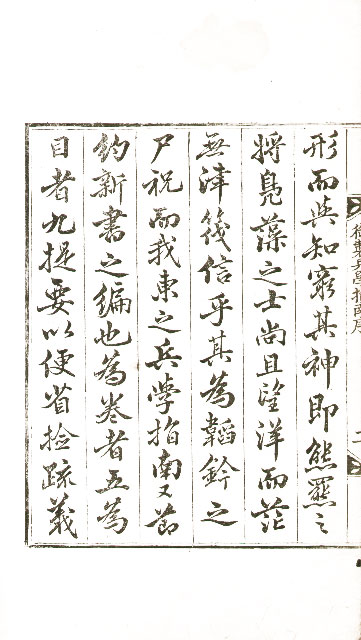 形而與知窮其神即熊羆之
將鳧藻之士尚且望洋而茫
無津筏信乎其為韜鈐之
尸祝而我東之兵學指南又節
約新書之編也為卷者五為
目者九提要以便省檢疏義
兵學指南序